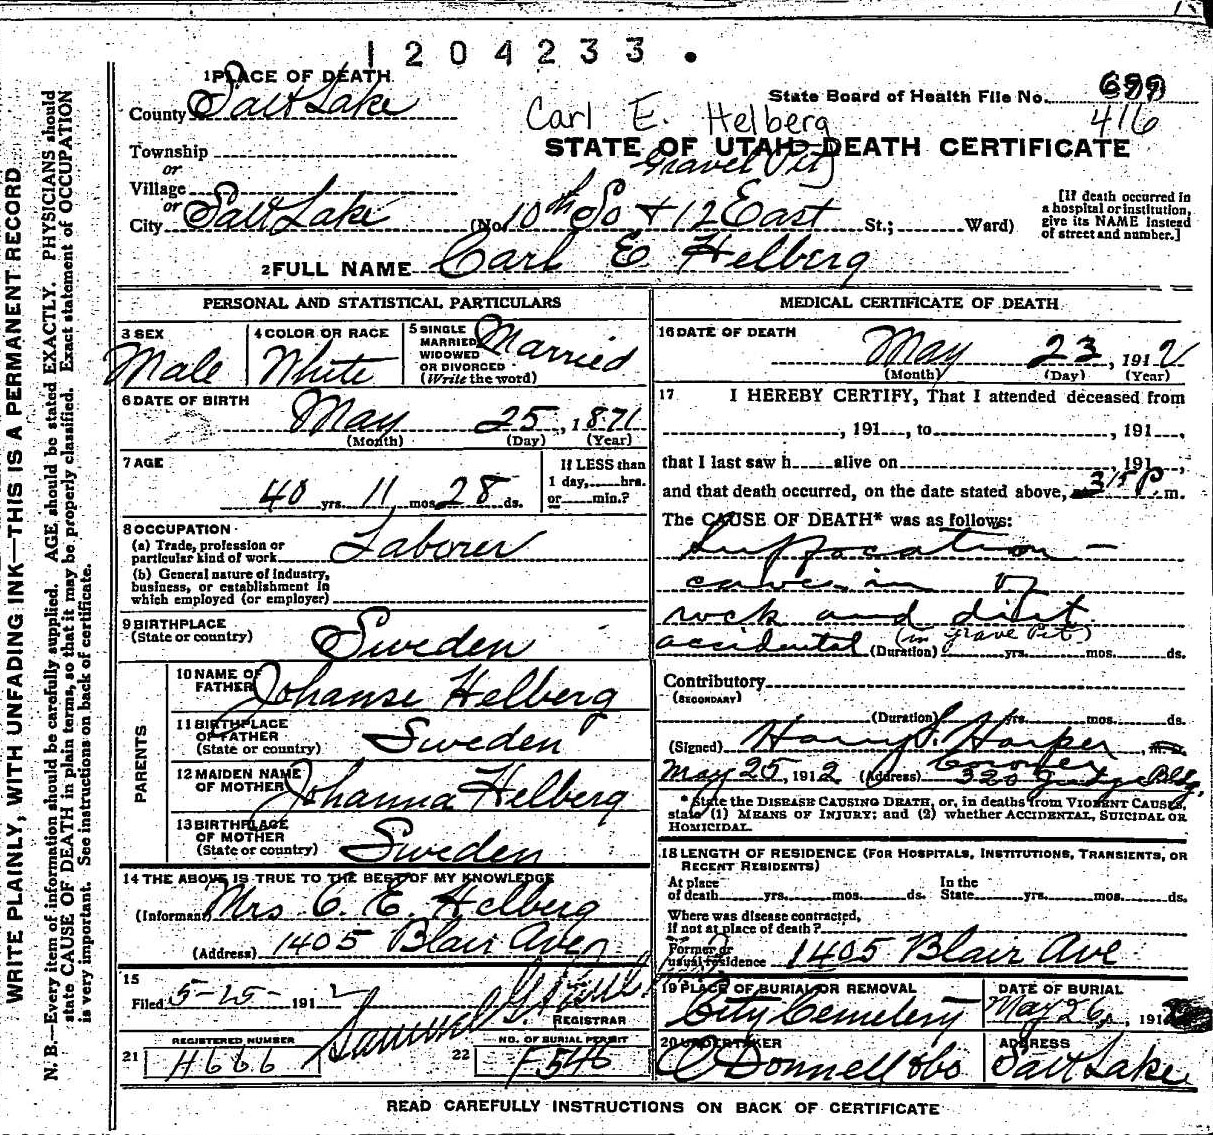 1204233.
1 PLACE OF DEATH
County Salt Lake
State Board of Health File No. 699
416
Carl E. Helberg
STATE OF UTAH—DEATH CERTIFICATE
Township
or
Village
or
City Salt Lake
Gravel Pit
(No. 10th So + 12 East St.; Ward)
[If death occurred in
a hospital or institution,
give its NAME instead
of street and number.]
2 FULL NAME Carl E Helberg
PERSONAL AND STATISTICAL PARTICULARS
3 SEX
Male
4 COLOR OR RACE
White
5 SINGLE
MARRIED
WIDOWED
OR DIVORCED
(Write the word)
Married
6 DATE OF BIRTH
May 25, 1871
(Month) (Day) (Year)
7 AGE
40 yrs. 11 mos. 28 ds.
If LESS than
1 day, hrs.
or min.?
8 OCCUPATION
(a) Trade, profession or
particular kind of work Laborer
(b) General nature of industry,
business, or establishment in
which employed (or employer)
9 BIRTHPLACE
(State or country) Sweden
PARENTS
10 NAME OF
FATHER Johanse Helberg
11 BIRTHPLACE
OF FATHER
(State or country) Sweden
12 MAIDEN NAME
OF MOTHER Johanna Helberg
13 BIRTHPLACE
OF MOTHER
(State or country) Sweden
14 THE ABOVE IS TRUE TO THE BEST OF MY KNOWLEDGE
(Informant) Mrs C. E. Helberg
(Address) 1405 Blair Ave
15
Filed 5-25- 1912
REGISTRAR
REGISTERED NUMBER
21 H666
NO. OF BURIAL PERMIT
22 F546
MEDICAL CERTIFICATE OF DEATH
16 DATE OF DEATH
May 23, 1912
(Month) (Day) (Year)
17 I HEREBY CERTIFY, That I attended deceased from
, 191 , to , 191 ,
that I last saw h alive on 191 ,
and that death occurred, on the date stated above, at 315 P. m.
The CAUSE OF DEATH* was as follows:
Suffocation —
cave in of
rock and dirt
accidental (in grave Pit)
(Duration) yrs. mos. ds.
Contributory
(SECONDARY)
(Duration) yrs. mos. ds.
(Signed) Harry S. Harper,
Coroner
May 25, 1912 (Address) 320 Judge Bldg.
*State the DISEASE CAUSING DEATH, or, in deaths from VIOLENT CAUSES,
state (1) MEANS OF INJURY; and (2) whether ACCIDENTAL, SUICIDAL OR
HOMICIDAL.
18 LENGTH OF RESIDENCE (FOR HOSPITALS, INSTITUTIONS, TRANSIENTS, OR
RECENT RESIDENTS)
At place
of death yrs. mos. ds.
In the
State yrs. mos. ds.
Where was disease contracted,
if not at place of death?
Former or
usual residence 1405 Blair Ave
19 PLACE OF BURIAL OR REMOVAL
City Cemetery
DATE OF BURIAL
May 26, 191
20 UNDERTAKER
O'Donnell &bo
ADDRESS
Salt Lake
READ CAREFULLY INSTRUCTIONS ON BACK OF CERTIFICATE
WRITE PLAINLY, WITH UNFADING INK—THIS IS A PERMANENT RECORD
N. B.—Every item of information should be carefully supplied. AGE should be stated EXACTLY. PHYSICIANS should
state CAUSE OF DEATH in plain terms, so that it may be properly classified. Exact statement of OCCUPATION
is very important. See instructions on back of certificate.